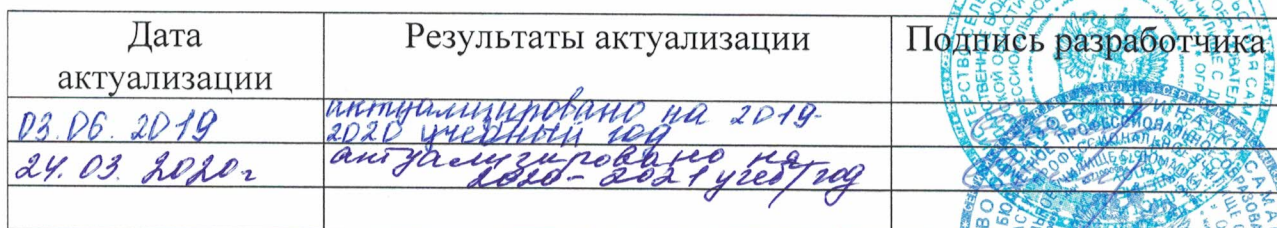 Дата
актуализации
Результаты актуализации
Подпись разработчика
03.06.2019
актуализировано на 2019-
2020 учебный год
24.03.2020г
актуализировано на
2020-2021 учеб/год